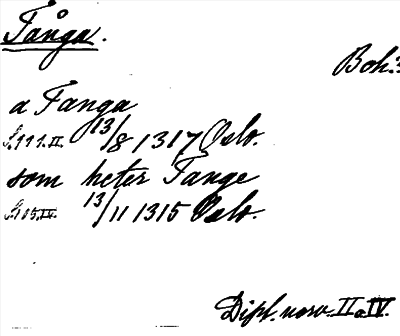 Tånga.
Boh:
a Tanga
13/8 1317 Oslo.
som heter Tange
13/11 1315 Oslo.
Dipl. norv. II o IV.